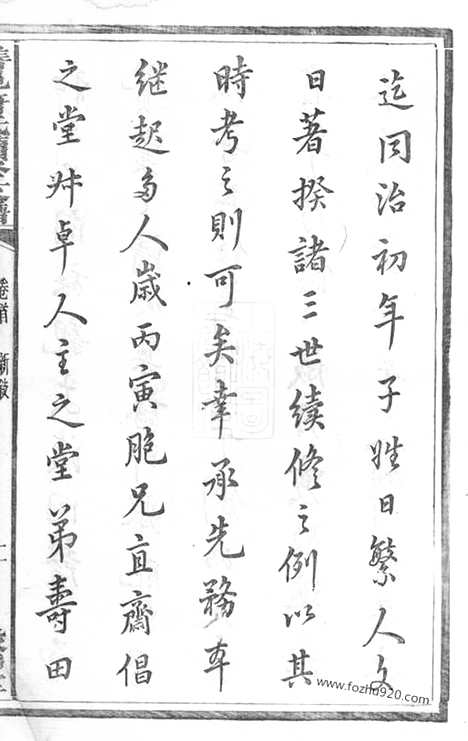 迄同治初年子姓日繁人文
日著揆諸三世續修之例以其
時考之則可矣幸承先務本
继起多人歲丙寅胞兄直齋倡
之堂叔卓人主之堂弟壽田
卷首
www.fozhu920.com